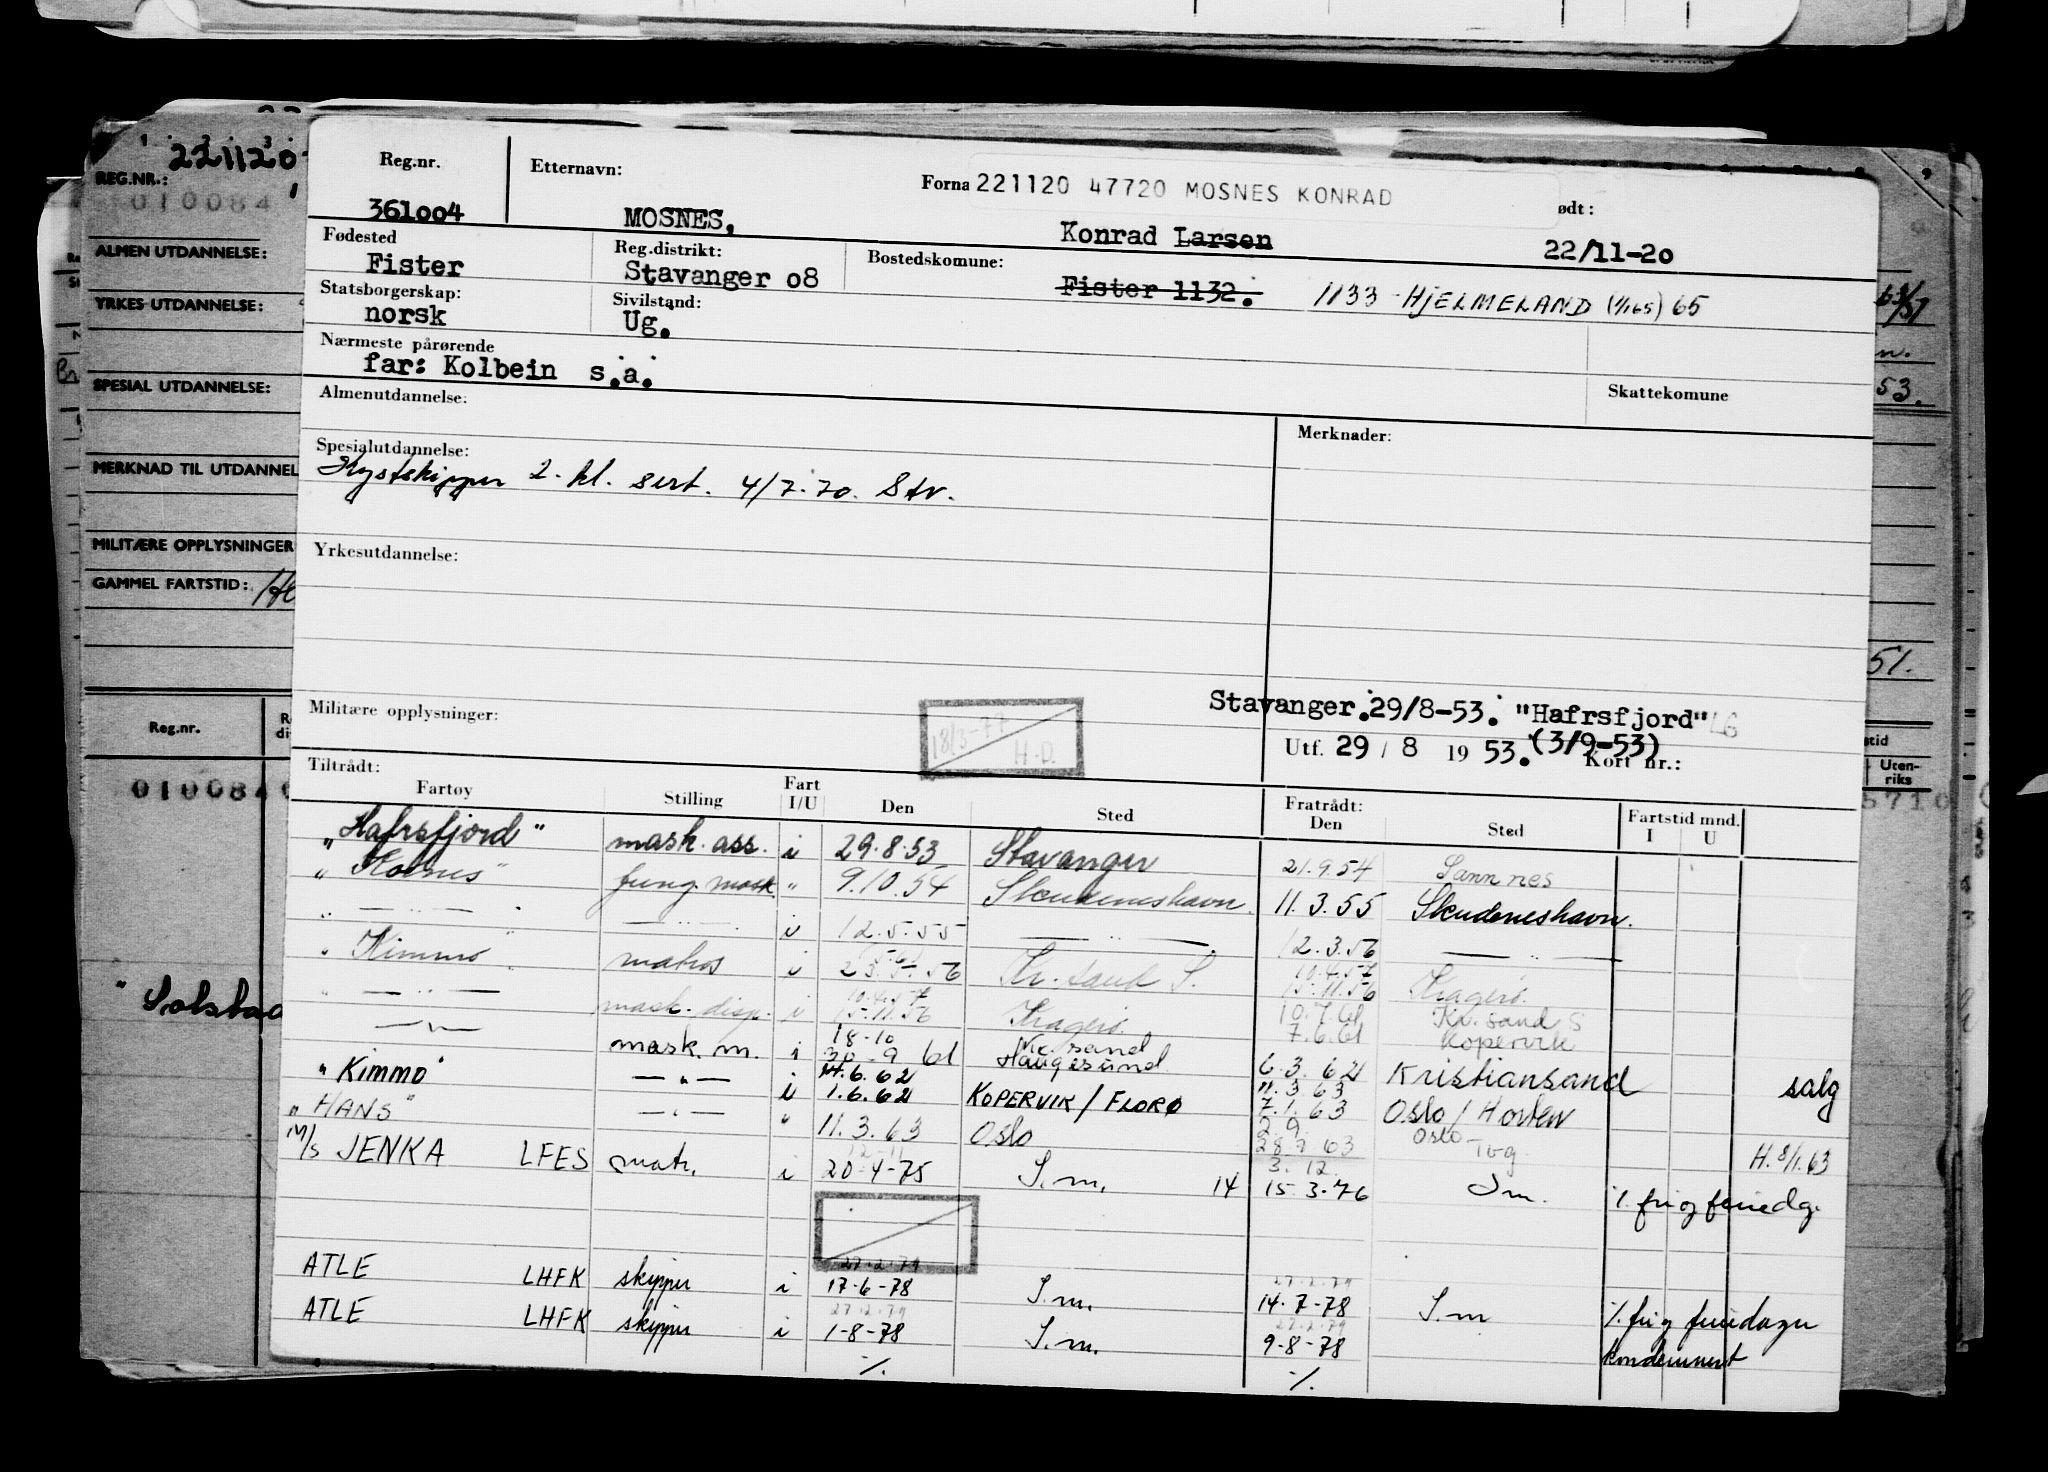 221120
REG.NR.:
010084
ALMEN UTDANNELSE:
YRKES UTDANNELSE:
SPESIAL UTDANNELSE:
MERKNAD TIL UTDANNEL
MILITÆRE OPPLYSNINGER
GAMMEL FARTSTID:
Reg.nr.
010084
53.
51.
Uten-
riks
5710
Reg.nr. Etternavn: Forna 221120 47720 MOSNES KONRAD ødt:
361004 MOSNES, Konrad Larsen 22/11-20
Fødested Reg.distrikt: Bostedskomune:
Fister Stavanger o8 Fister 1132. 1133 HJELMELAND (1/1 65) 65
Statsborgerskap: Sivilstand:
norsk Ug.
Nærmeste pårørende
far: Kolbein s.a.
Almenutdannelse: Skattekomune
Spesialutdannelse: Merknader:
Kystskipper 2. kl. sert. 4/7.70. Stv.
Yrkesutdannelse:
Militære opplysninger: 18/3-77 H.D. Stavanger. 29/8-53. "Hafrsfjord" LG
Utf. 29 / 8 19 53. (3/9-53) Kort nr.:
Tiltrådt: Fratrådt: Fartstid mnd.
Fartøy Stilling Fart I/U Den Sted Den Sted I U
"Hafrsfjord" mask. ass. i 29.8.53 Stavanger 21.9.54 Sannnes
" fung. mask. " 9.10.54 Skudeneshavn 11.3.55 Skudeneshavn.
— " — — " — i 12.5.55 — " — 12.3.56 — " —
"Kimmo" matros i 23.5.56 Kr. sand S. 10.4.57 15.11.56 Kragerø.
— " — mask. disp. i 10.4.57 15.11.56 Kragerø. 10.7.61 Kr. sand S
7.6.61 Kopervik
— " — mask. m. i 18-10 30-9 61 Kr. sand Haugesund 6.3.62 Kristiansand salg
"Kimmo" — " — i 1.6.62 KOPERVIK / FLORØ 11.3.63 7.1.63 Oslo / Horten
"HANS" — " — " 11.3.63 Oslo 2.9 28.7 63 Oslo Tvg. H. 8/1.63
M/S JENKA LFES matr. i 20-4-75 S.m. 14 3.12. 15.3-76 S m. % fri og feriedg.
27.2.79 27.2.79
ATLE LHFK skipper i 17-6-78 S.m. 14-7-78 S.m % fri og feriedager
27.2.79 27.2.79
ATLE LHFK skipper i 1-8-78 S.m. 9-8-78 kondemnert
%. %.